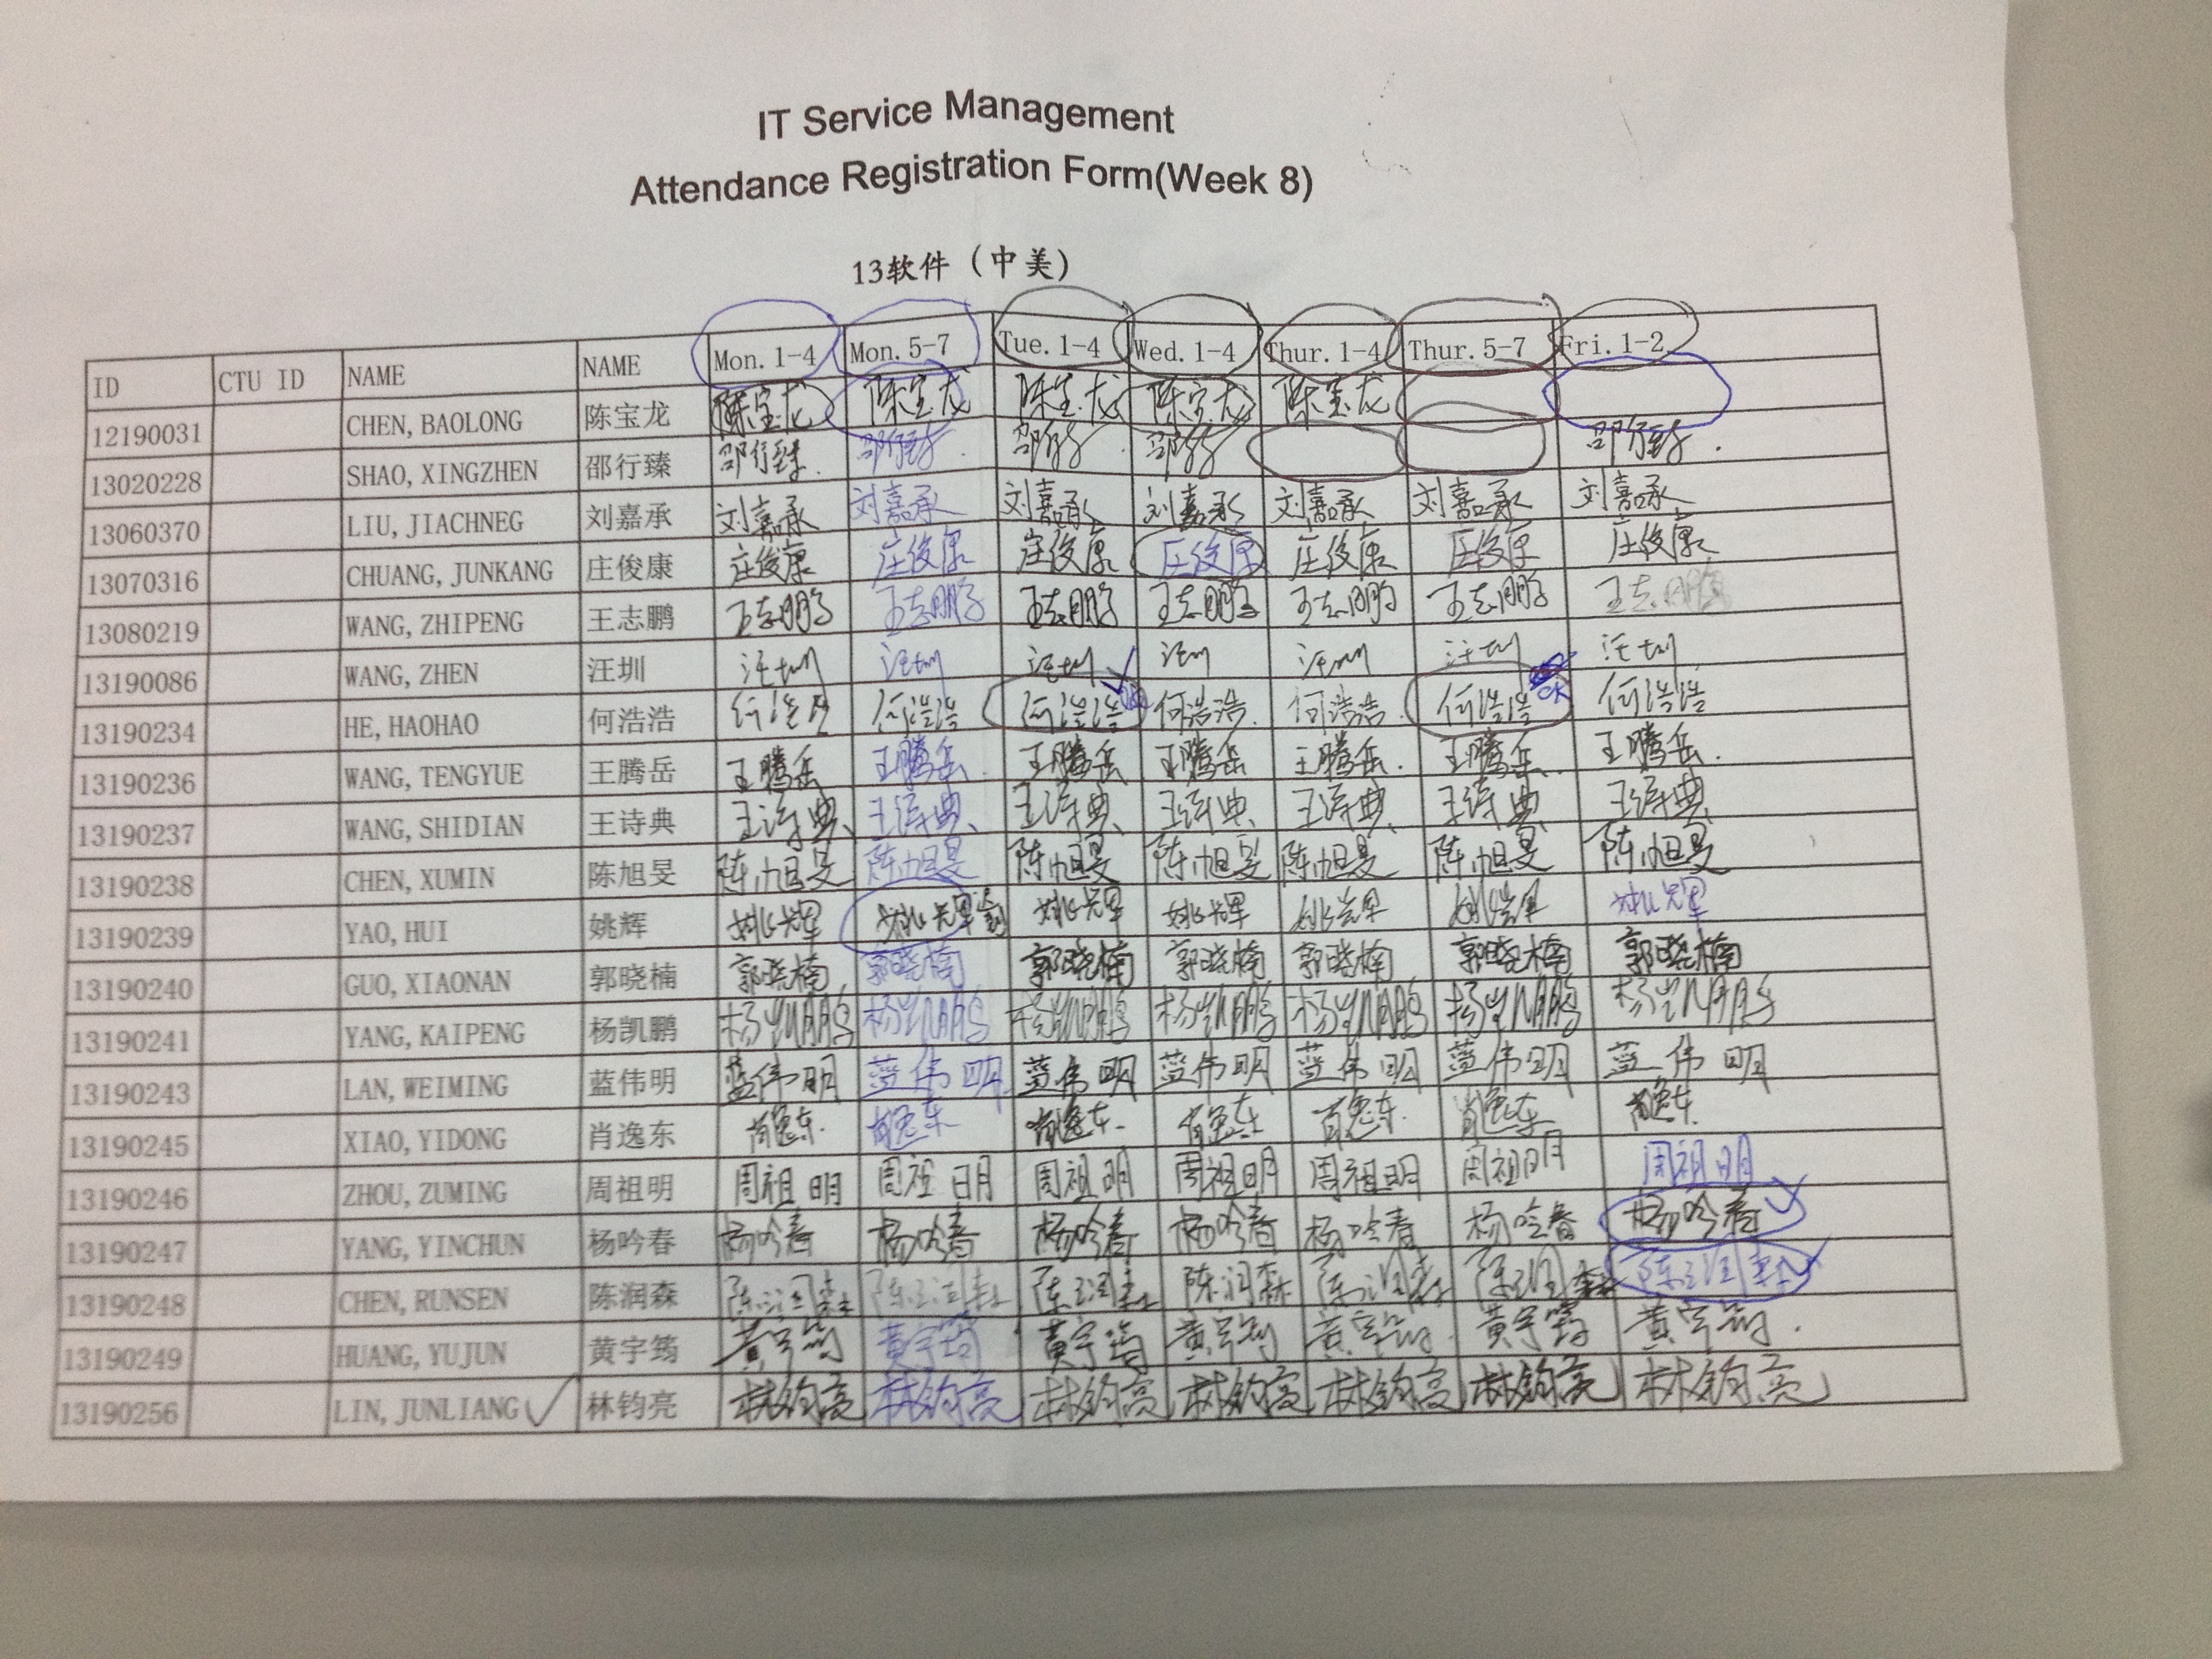 IT Service Management
Attendance Registration Form(Week 8)
13软件（中美）
ID CTU ID NAME NAME Mon. 1-4 Mon. 5-7 Tue. 1-4 Wed. 1-4 Thur. 1-4 Thur. 5-7 Fri. 1-2
12190031 CHEN, BAOLONG 陈宝龙 陈宝龙 陈宝龙 陈宝龙 陈宝龙 陈宝龙
13020228 SHAO, XINGZHEN 邵行臻 邵行臻
13060370 LIU, JIACHNEG 刘嘉承 刘嘉承 刘嘉承 刘嘉承 刘嘉承 刘嘉承 刘嘉承 刘嘉承
13070316 CHUANG, JUNKANG 庄俊康 庄俊康 庄俊康 庄俊康 庄俊康 庄俊康 庄俊康 庄俊康
13080219 WANG, ZHIPENG 王志鹏 王志鹏 王志鹏 王志鹏 王志鹏 王志鹏 王志鹏 王志鹏
13190086 WANG, ZHEN 汪圳 汪圳 汪圳 汪圳 汪圳 汪圳 汪圳 汪圳
13190234 HE, HAOHAO 何浩浩 何浩浩 何浩浩 何浩浩 何浩浩 何浩浩 何浩浩 OK 何浩浩
13190236 WANG, TENGYUE 王腾岳 王腾岳 王腾岳 王腾岳 王腾岳 王腾岳 王腾岳 王腾岳
13190237 WANG, SHIDIAN 王诗典 王诗典 王诗典 王诗典 王诗典 王诗典 王诗典 王诗典
13190238 CHEN, XUMIN 陈旭旻 陈旭旻 陈旭旻 陈旭旻 陈旭旻 陈旭旻 陈旭旻 陈旭旻
13190239 YAO, HUI 姚辉 姚辉 姚辉 姚辉 姚辉 姚辉 姚辉 姚辉
13190240 GUO, XIAONAN 郭晓楠 郭晓楠 郭晓楠 郭晓楠 郭晓楠 郭晓楠 郭晓楠 郭晓楠
13190241 YANG, KAIPENG 杨凯鹏 杨凯鹏 杨凯鹏 杨凯鹏 杨凯鹏 杨凯鹏 杨凯鹏 杨凯鹏
13190243 LAN, WEIMING 蓝伟明 蓝伟明 蓝伟明 蓝伟明 蓝伟明 蓝伟明 蓝伟明 蓝伟明
13190245 XIAO, YIDONG 肖逸东 肖逸东 肖逸东 肖逸东 肖逸东 肖逸东 肖逸东 肖逸东
13190246 ZHOU, ZUMING 周祖明 周祖明 周祖明 周祖明 周祖明 周祖明 周祖明 周祖明
13190247 YANG, YINCHUN 杨吟春 杨吟春 杨吟春 杨吟春 杨吟春 杨吟春 杨吟春 杨吟春
13190248 CHEN, RUNSEN 陈润森 陈润森 陈润森 陈润森 陈润森 陈润森 陈润森 陈润森
13190249 HUANG, YUJUN 黄宇筠 黄宇筠 黄宇筠 黄宇筠 黄宇筠 黄宇筠 黄宇筠 黄宇筠
13190256 LIN, JUNLIANG 林钧亮 林钧亮 林钧亮 林钧亮 林钧亮 林钧亮 林钧亮 林钧亮